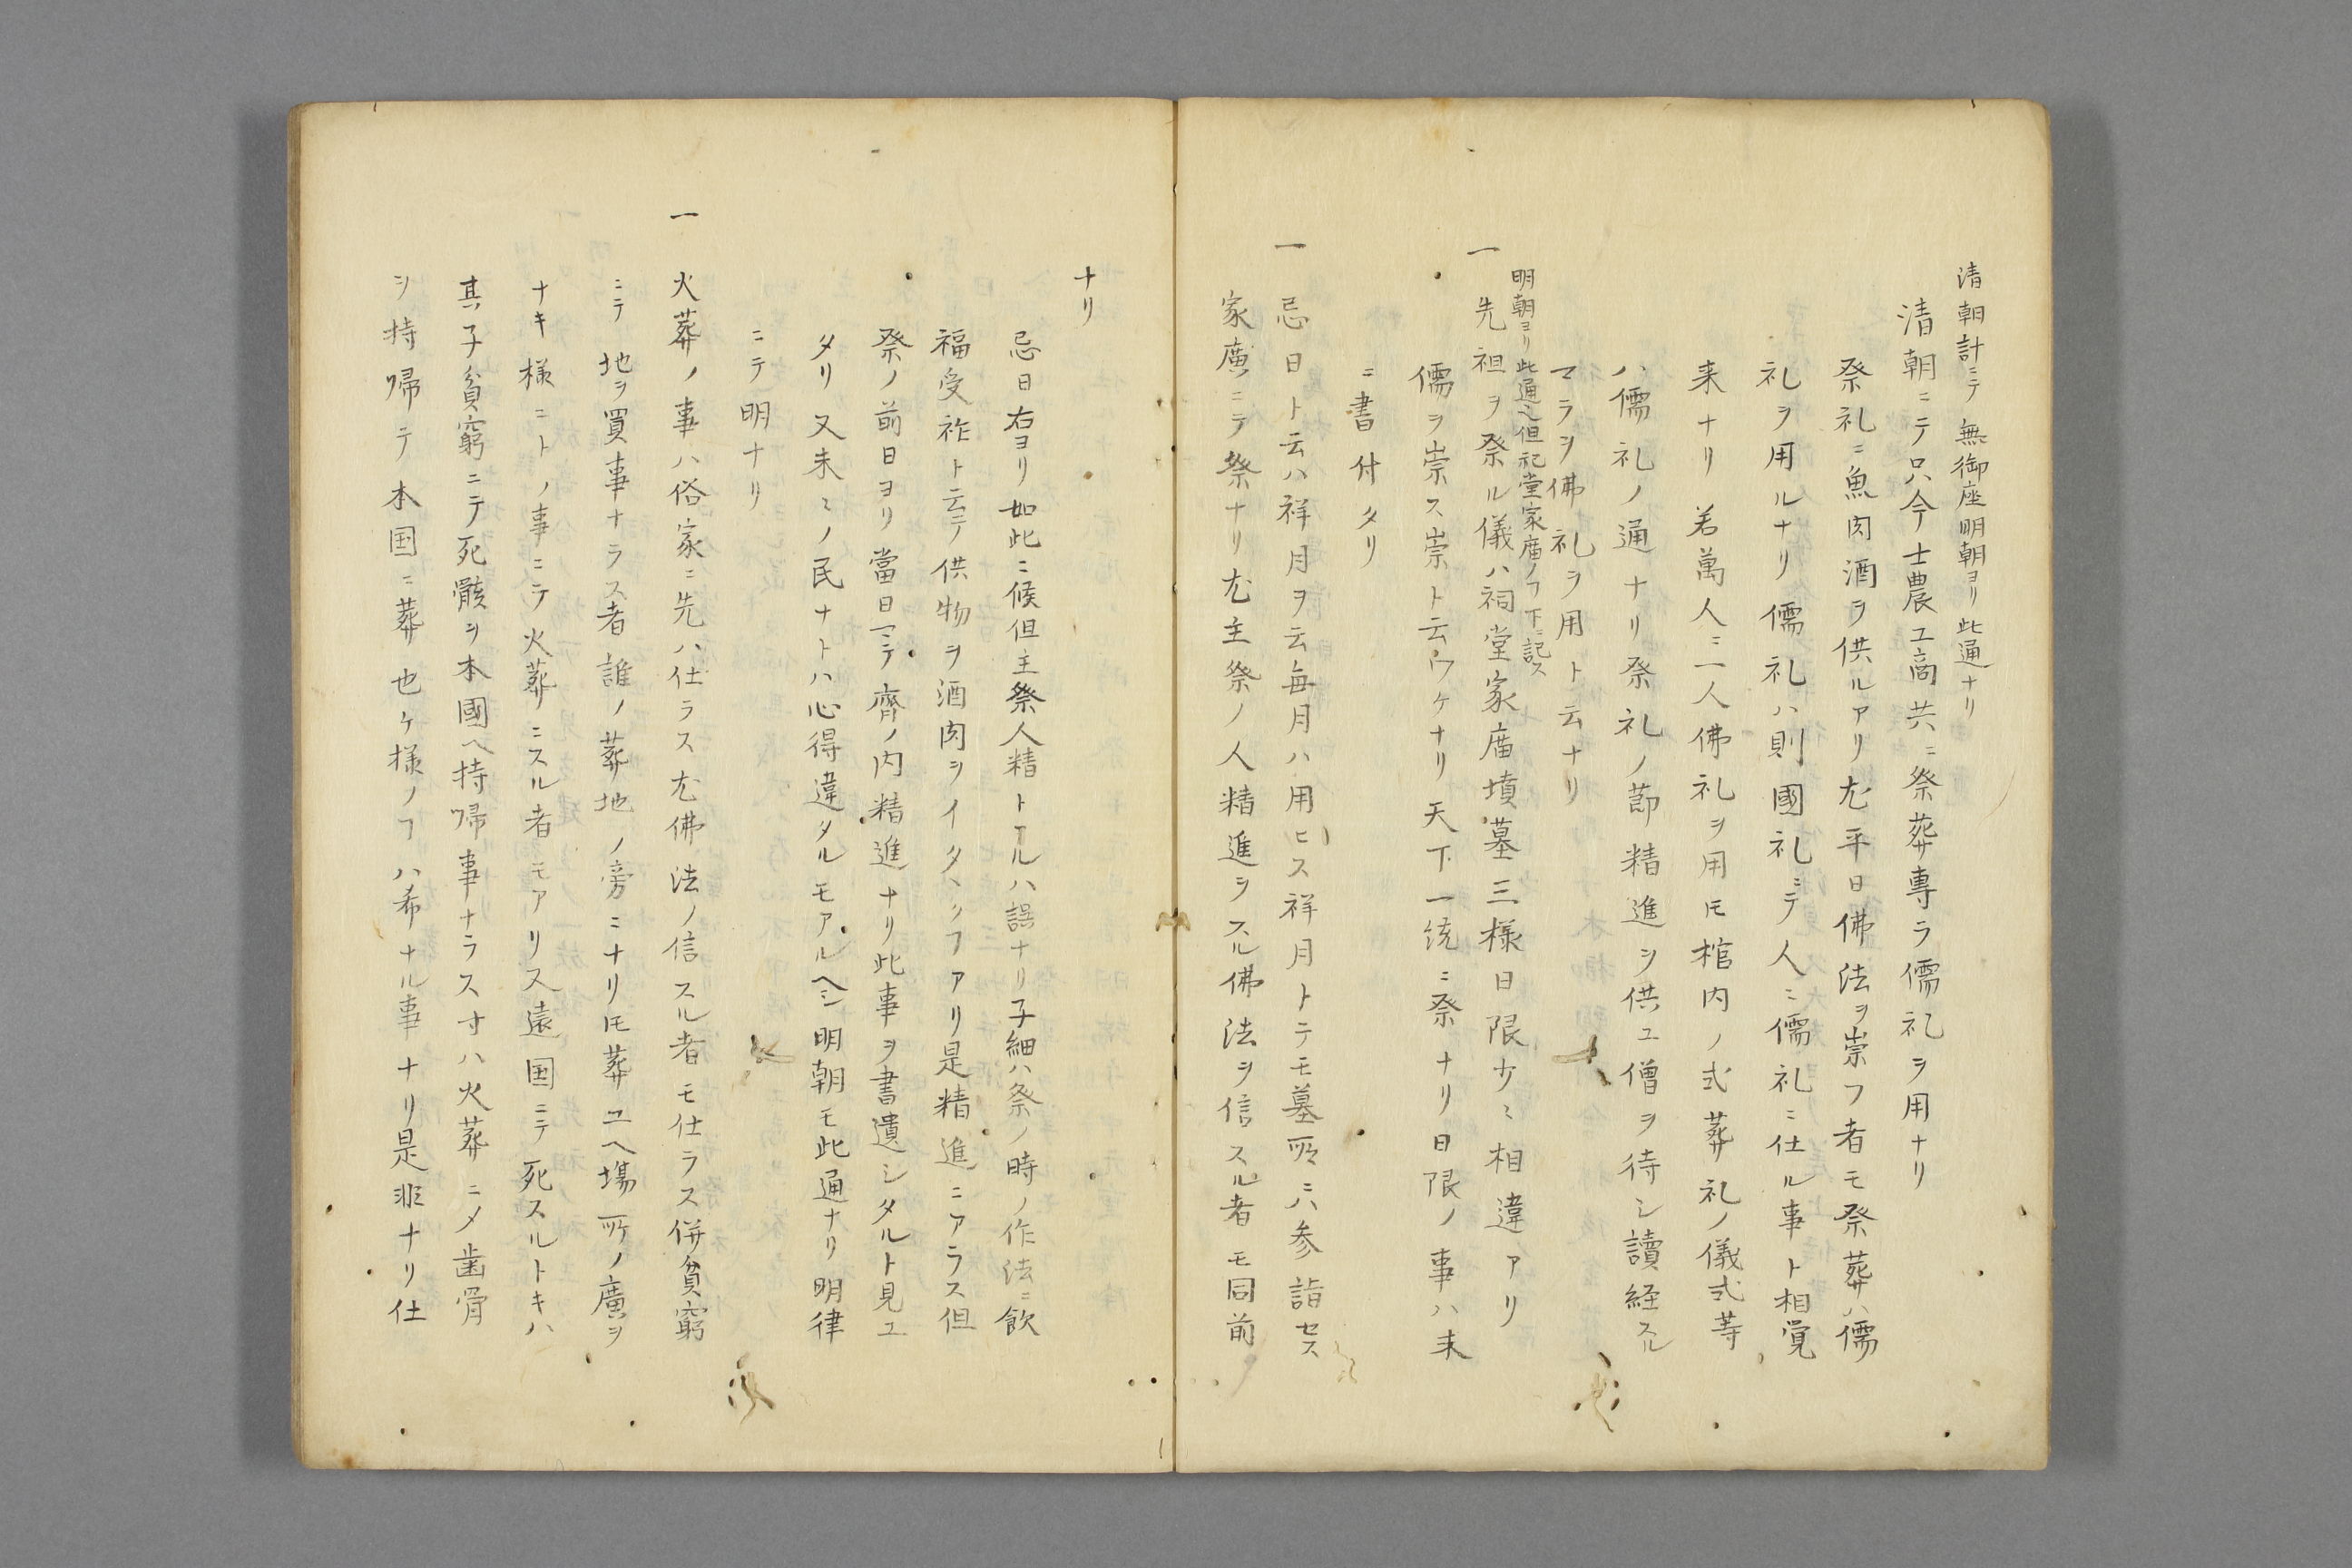 清朝計ニテ無御座明朝ヨリ此通ナリ
清朝ニテ只今士農工商共ニ祭葬専ラ儒礼ヲ用ナリ
祭礼ニ魚肉酒ヲ供ルアリ尤平日佛法ヲ崇フ者モ祭葬ハ儒
礼ヲ用ルナリ儒礼ハ則國礼ニテ人ニ儒礼ニ仕ル事ト相覚
来ナリ若萬人ニ一人佛礼ヲ用ヒ棺内ノ式葬礼ノ儀式等
ハ儒礼ノ通ナリ祭礼ノ節精進ヲ供ユ僧ヲ待シ讀経スル
マラヲ佛礼ヲ用ト云ナリ
明朝ヨリ此通也但祀堂家廟ノヿ下ニ記ス
一 先祖ヲ祭ル儀ハ祠堂家廟墳墓三様日限少〻相違アリ
儒ヲ崇ス崇ト云ワケナリ天下一統ニ祭ナリ日限ノ事ハ末
ニ書付タリ
一 忌日ト云ハ祥月ヲ云毎月ハ用ヒス祥月トテモ墓所ニハ参詣セス
家廣ニテ祭ナリ尤主祭ノ人精進ヲスル佛法ヲ信スル者モ同前
ナリ
忌日右ヨリ如此ニ候但主祭人精トアルハ誤ナリ子細ハ祭ノ時ノ作法ニ飲
福受祚ト云テ供物ヲ酒肉ヲイタヽクヿアリ是精進ニアラス但
祭ノ前日ヨリ當日ニテ齊ノ内精進ナリ此事ヲ書遺シタルト見ユ
タリ又末〻ノ民ナトハ心得違タルモアルヘシ明朝モ此通ナリ明律
ニテ明ナリ
一 火葬ノ事ハ俗家ニ先ハ仕ラス尤佛法ノ信スル者モ仕ラス併貧窮
ニテ地ヲ買事ナラス者誰ノ葬地ノ旁ニナリ𪜈葬ユヘ場所ノ廣ヲ
ナキ様ニトノ事ニテ火葬ニスル者モアリ又遠国ニテ死スルトキハ
其子貧窮ニテ死骸ヲ本國ヘ持帰事ナラス寸ハ火葬ニメ歯骨
ヲ持帰テ本国ニ葬也ケ様ノヿハ希ナル事ナリ是非ナリ仕